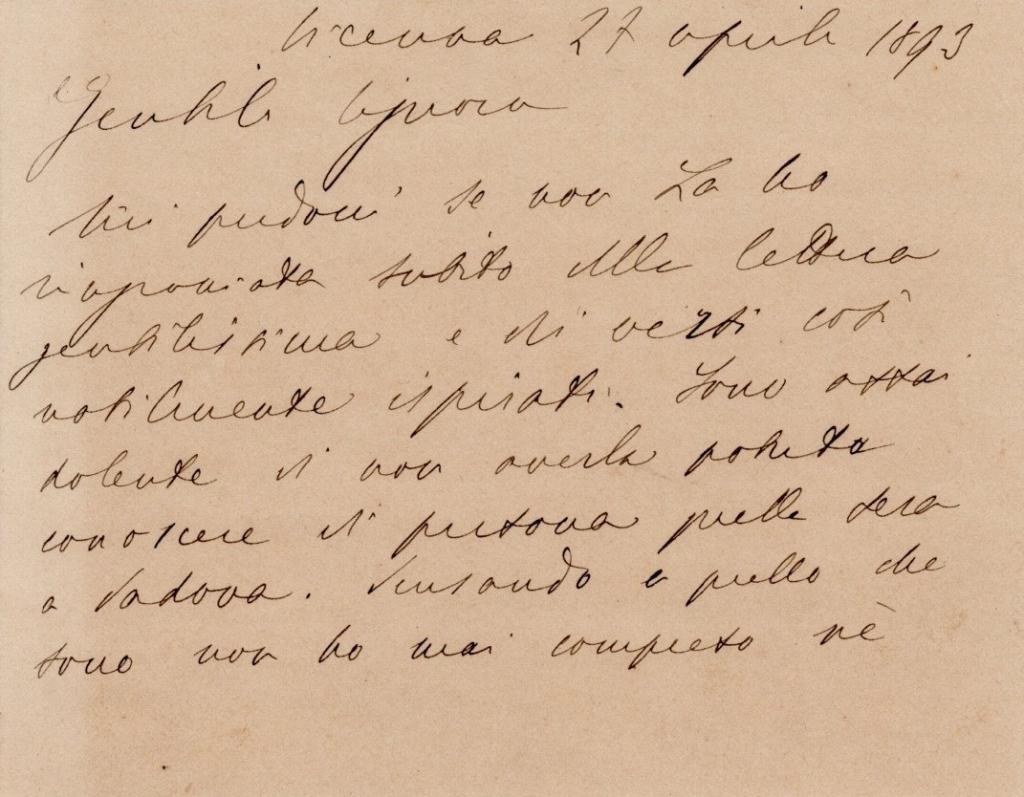 Vicenza 27 aprile 1893
Gentile Signora
Mi perdoni se non La ho
ringraziata subito della lettera
gentilissima e di versi così
nobilmente ispirati. Sono assai
dolente di non averla potuta
conoscere di persona quella sera
a Padova. Pensando a quello che
sono non ho mai compreso nè